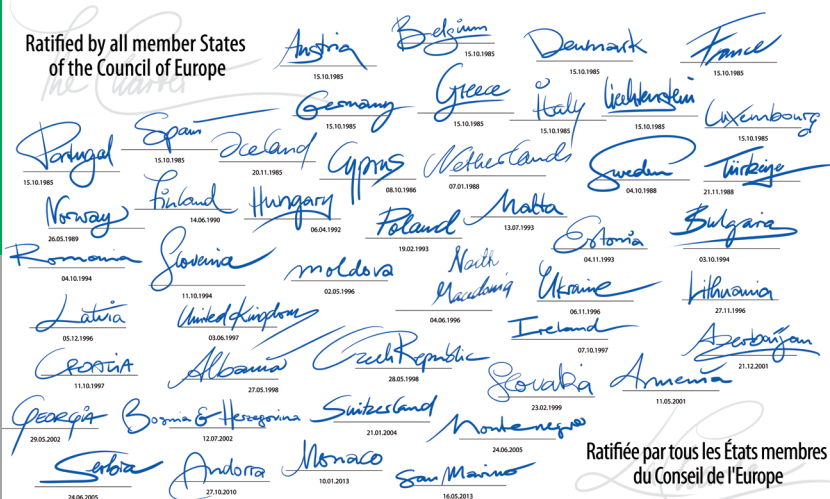 The Charter
Ratified by all member States
of the Council of Europe
Austria
15.10.1985
Belgium
15.10.1985
Denmark
15.10.1985
France
15.10.1985
Germany
15.10.1985
Greece
15.10.1985
Italy
15.10.1985
Liechtenstein
15.10.1985
Luxembourg
15.10.1985
Portugal
15.10.1985
Spain
15.10.1985
Iceland
20.11.1985
Cyprus
08.10.1986
Netherlands
07.01.1988
Sweden
04.10.1988
Türkiye
21.11.1988
Norway
26.05.1989
Finland
14.06.1990
Hungary
06.04.1992
Poland
19.02.1993
Malta
13.07.1993
Estonia
04.11.1993
Bulgaria
03.10.1994
Romania
04.10.1994
Slovenia
11.10.1994
Moldova
02.05.1996
North
Macedonia
04.06.1996
Ukraine
06.11.1996
Lithuania
27.11.1996
Latvia
05.12.1996
United Kingdom
03.06.1997
Ireland
07.10.1997
Croatia
11.10.1997
Albania
27.05.1998
Czech Republic
28.05.1998
Slovakia
23.02.1999
Armenia
11.05.2001
Azerbaijan
21.12.2001
Georgia
29.05.2002
Bosnia & Herzegovina
12.07.2002
Switzerland
21.01.2004
Montenegro
24.06.2005
Serbia
24.06.2005
Andorra
27.10.2010
Monaco
10.01.2013
San Marino
16.05.2013
Ratifiée par tous les États membres
du Conseil de l'Europe